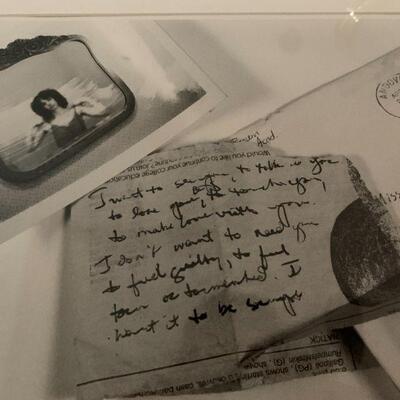 Would you like to continue your college education
I want to see you, to talk to you
to love you, to touch you,
to make love with you.
I don't want to need you
to feel guilty, to feel
torn or tormented. I
want it to be simple
Rumpelstiltskin (G).
(PG), shows